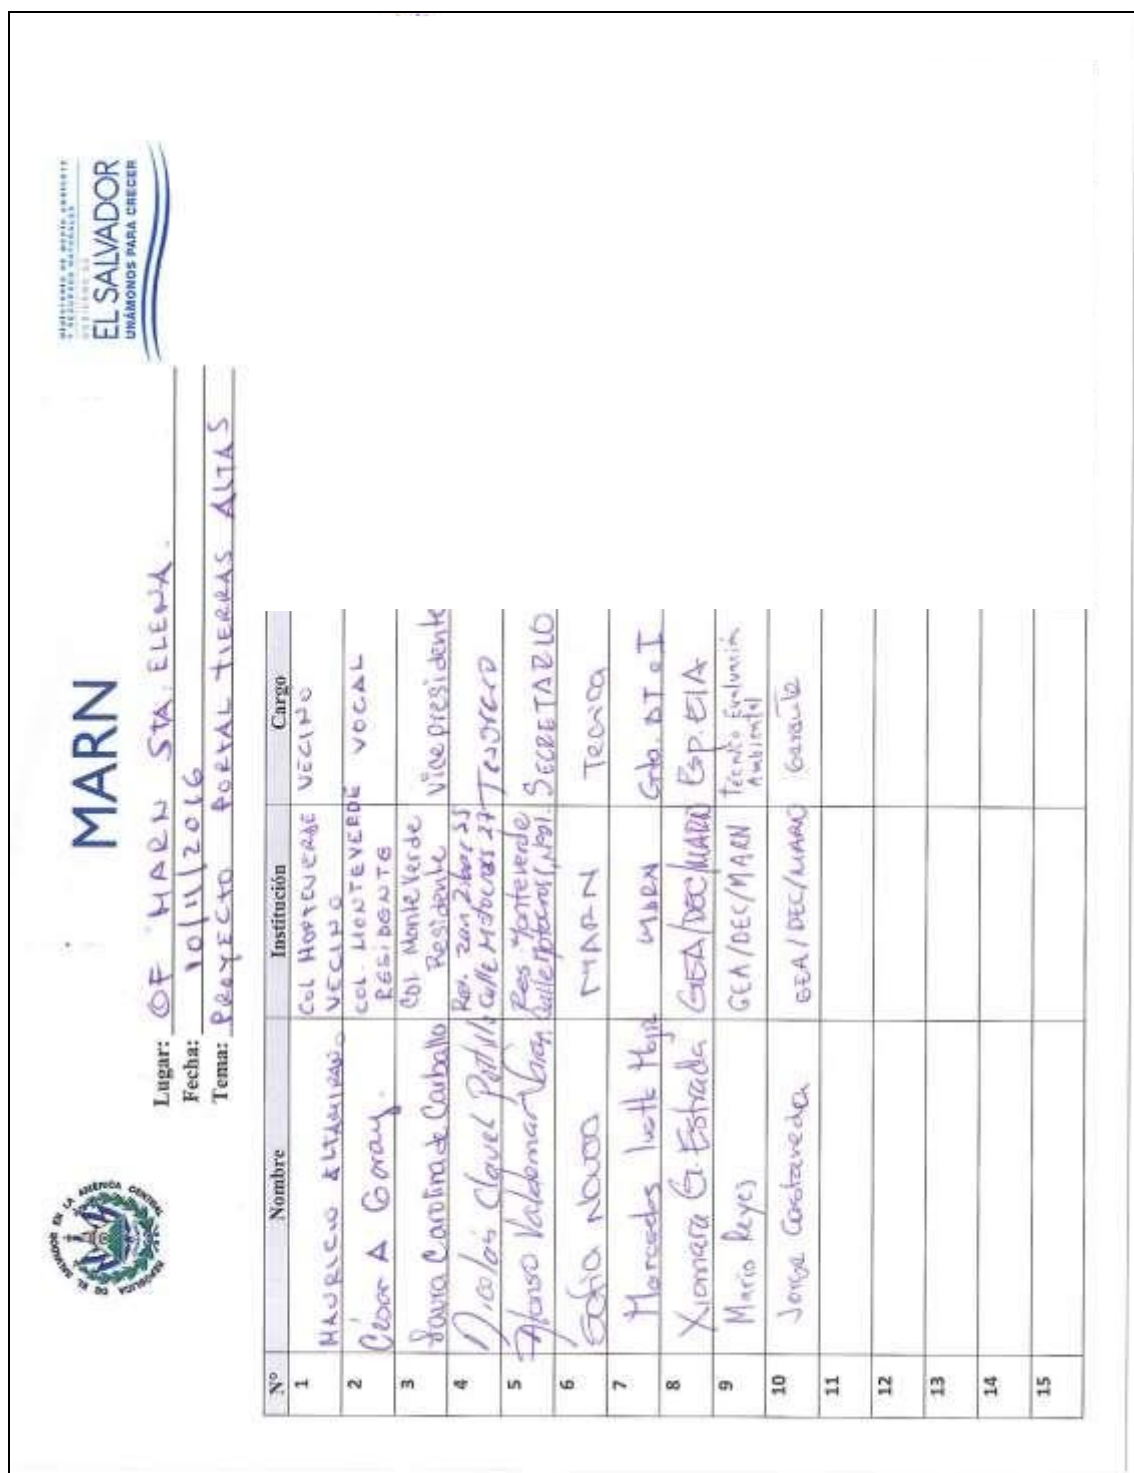 REPÚBLICA DE EL SALVADOR EN LA AMÉRICA CENTRAL
MARN
MINISTERIO DE MEDIO AMBIENTE
Y RECURSOS NATURALES
GOBIERNO DE
EL SALVADOR
UNÁMONOS PARA CRECER
Lugar: OF MARN STA. ELENA.
Fecha: 10/11/2016
Tema: PROYECTO PORTAL TIERRAS ALTAS
N° Nombre Institución Cargo
1 MAURICIO ALTAMIRANO COL MONTEVERDE VECINO
VECINO
2 César A Garay. COL. MONTEVERDE VOCAL
RESIDENTE
3 Carolina de Carballo Col. Monte Verde Vicepresidente
Residente
4 Nicolás Clavel Portillo Calle Motocross 27 Tesorero
5 Alfonso Valdemar Res. Monteverde SECRETARIO
6 Sofia Novoa MARN Tecnica
7 Mercedes MARN
8 Xiomara G. Estrada GEA/DEC/MARN Esp. EIA
9 Mario Reyes GEA/DEC/MARN Técnico Evaluación
Ambiental
10 Jorge Castaneda GEA/DEC/MARN Gerente
11
12
13
14
15